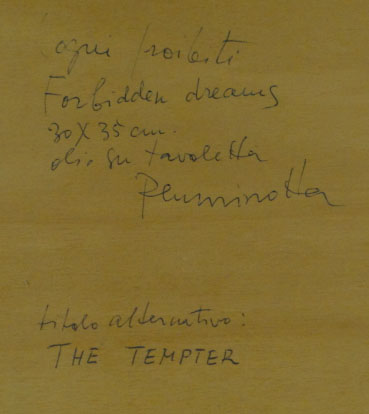 Sogni proibiti
Forbidden dreams
30X35 cm.
olio su tavoletta
titolo alternativo:
THE TEMPTER